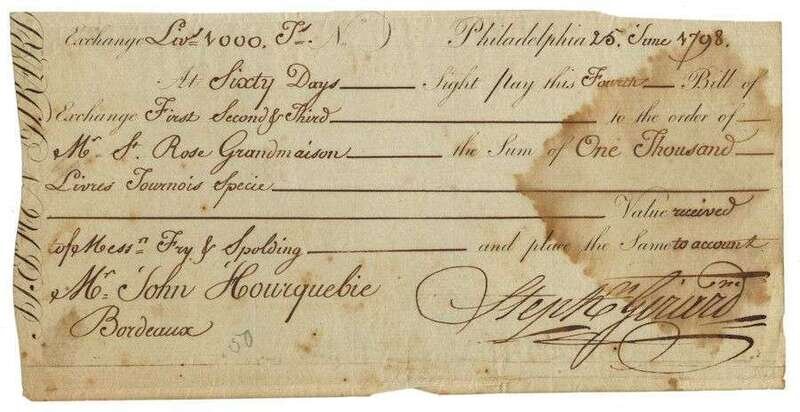 Exchange Livs 1000. Ts. No
Philadelphia 25. June 1798.
At Sixty Days Sight pay this Fourth Bill of
Exchange First Second & Third to the order of
Mr. St. Rose Grandmaison the Sum of One Thousand
Livres Tournois Specie
Value received
of Messrs Fry & Spolding and place the Same to account
Mr. John Hourquebie
Bordeaux
Stepn Girard
50